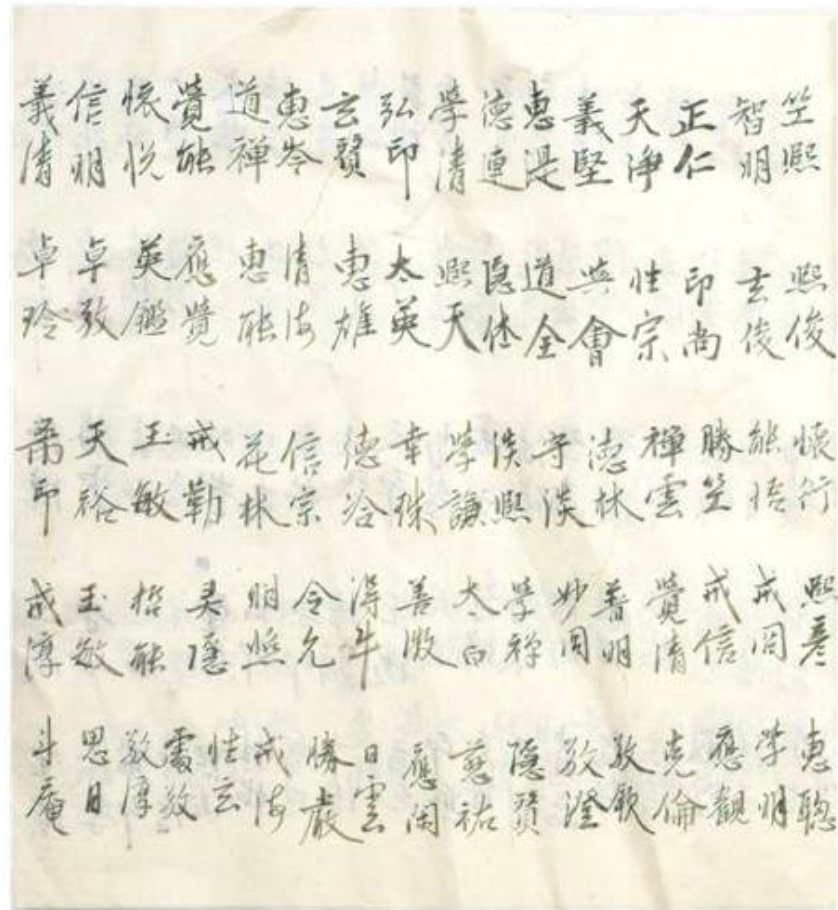 竺熙 智明 正仁 天淨 義堅 惠湜 德連 學清 弘印 玄賢 惠岑 道禪 覺能 懷悅 信明 義清
熙俊 玄俊 印尚 性宗 會 道全 隐休 熙天 太英 惠雄 清海 惠能 應覺 英鑑 卓敎 卓玲
懷行 能悟 勝竺 禪雲 德林 守淡 淡熙 學謙 幸珠 德冾 信宗 花林 戒勤 玉敏 天裕 印
熙彥 戒信 覺清 普明 妙周 學禪 太白 善 得牛 令允 明照 灵隱 哲能 玉敏 成淳
惠聰 學明 應觀 克倫 敎欽 敎澄 隐賢 慈祐 應閑 日雲 勝巖 戒海 性玄 處敎 敎淳 思日 斗庵